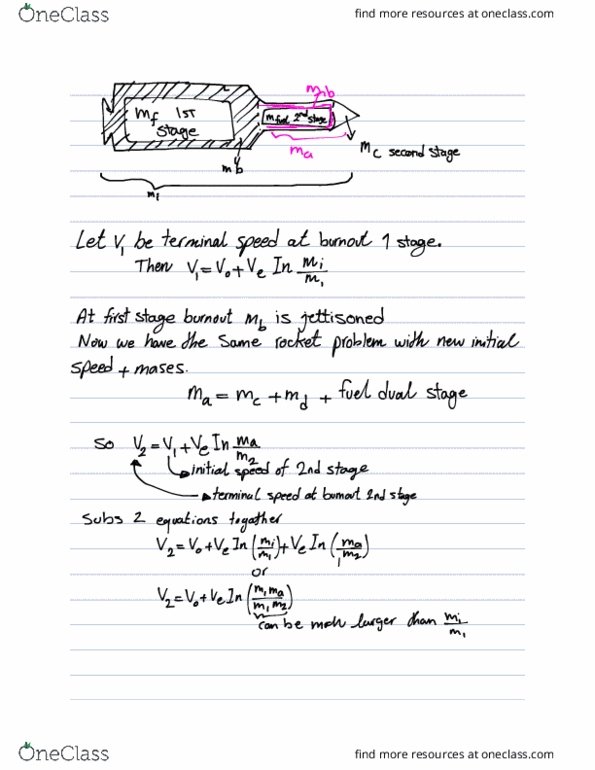 OneClass
find more resources at oneclass.com
mf 1st stage
mfuel 2nd stage
ma
mc second stage
mb
Let V₁ be terminal speed at burnout 1 stage.
Then V₁ = V₀ + Ve ln mi/m₁
At first stage burnout mb is jettisoned
Now we have the same rocket problem with new initial
speed + mases.
ma = mc + md + fuel dual stage
So V₂ = V₁ + Ve ln ma/m₂
initial speed of 2nd stage
terminal speed at burnout 2nd stage
Subs 2 equations togather
V₂ = V₀ + Ve ln (mi/m₁) + Ve ln (ma/m₂)
or
V₂ = V₀ + Ve ln (mi ma/m₁ m₂)
can be larger than mi/m₁
OneClass
find more resources at oneclass.com